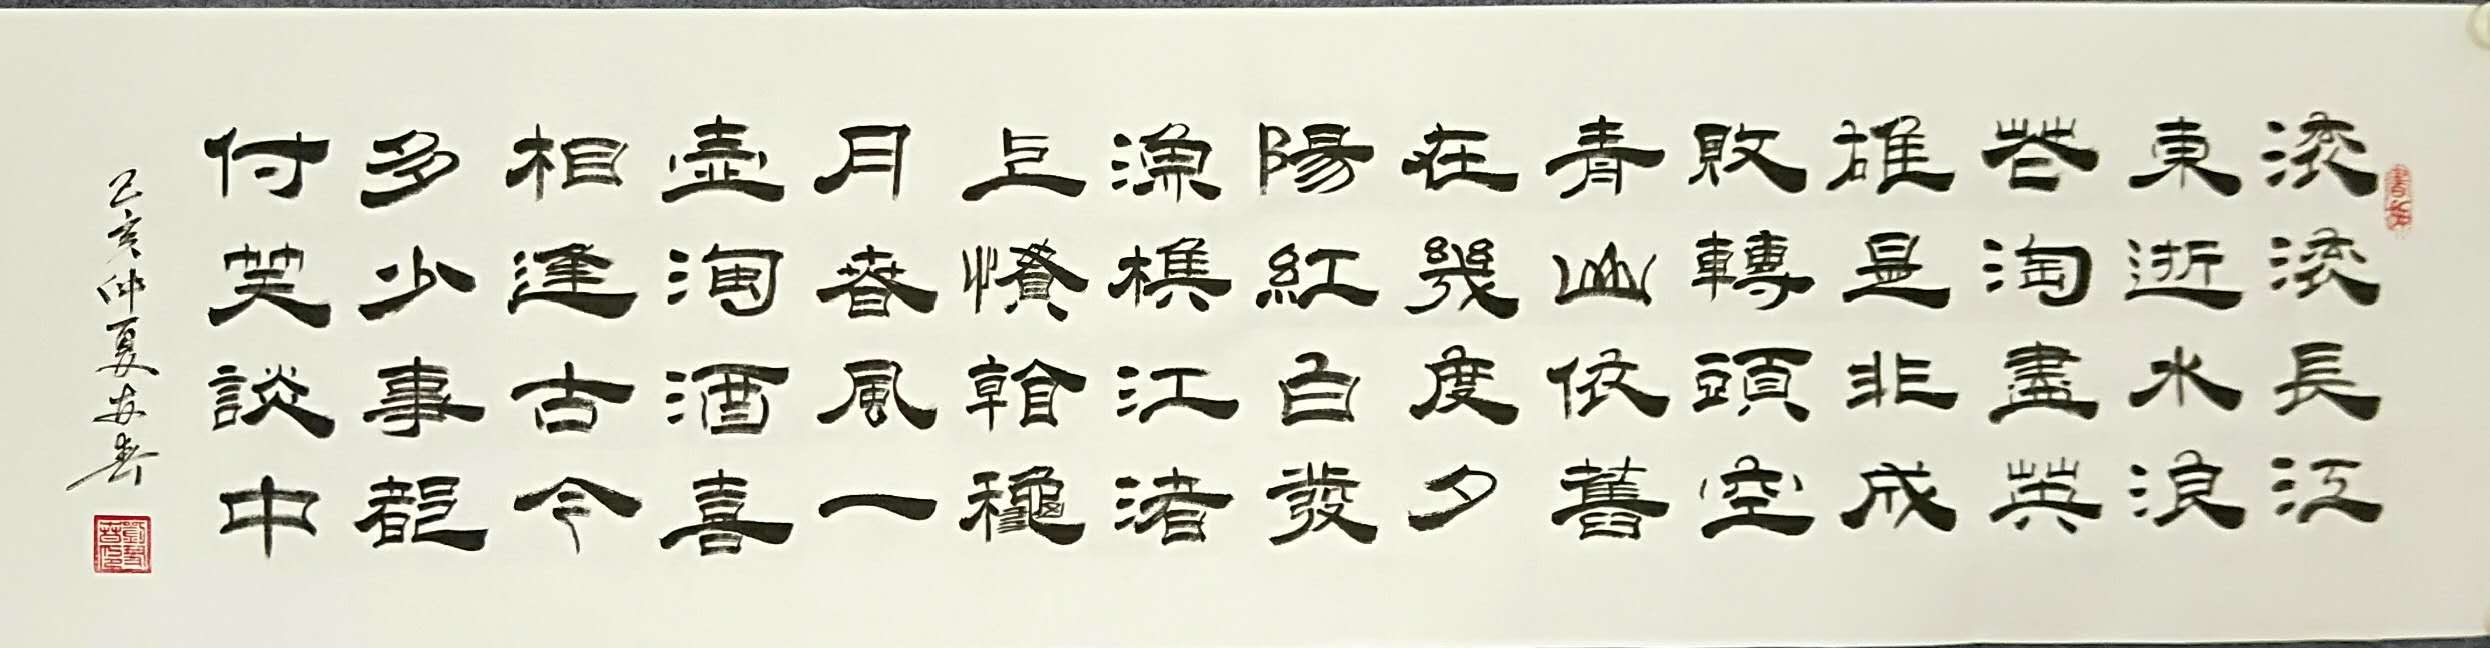 滚滚長江
東逝水浪
花淘盡英
雄是非成
敗轉頭空
青山依舊
在幾度夕
陽紅白發
漁樵江渚
上慣看龝
月春風一
壺濁酒喜
相逢古今
多少事都
付笑談中
己亥仲夏